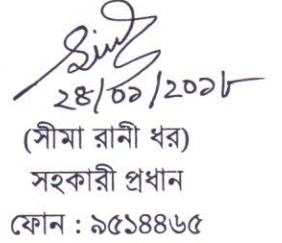 ২৪/০১/২০১৮
(সীমা রানী ধর)
সহকারী প্রধান
ফোন : ৯৫১৪৪৬৫